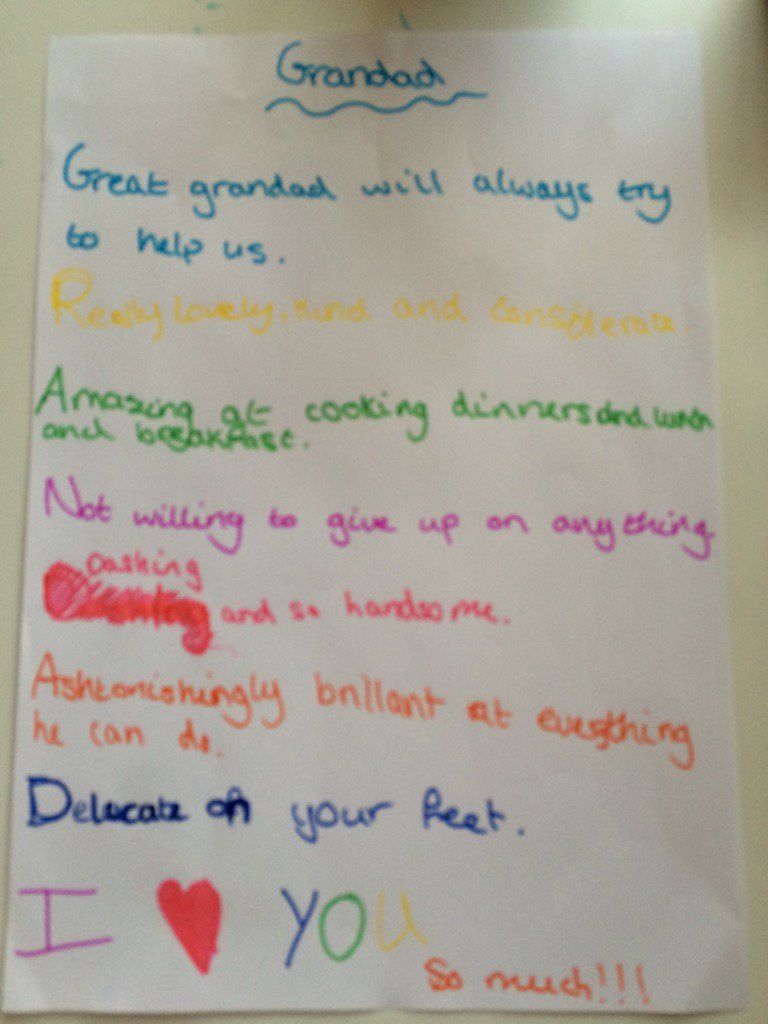 Grandad
Great grandad will always try
to help us.
Really lovely, kind and considerate.
Amazing at cooking dinners and lunch
and breakfast.
Not willing to give up on anything.
Dashing
and so handsome.
Ashtonishingly brillant at everything
he can do.
Delecate on your feet.
I ♥ YOU
So much!!!